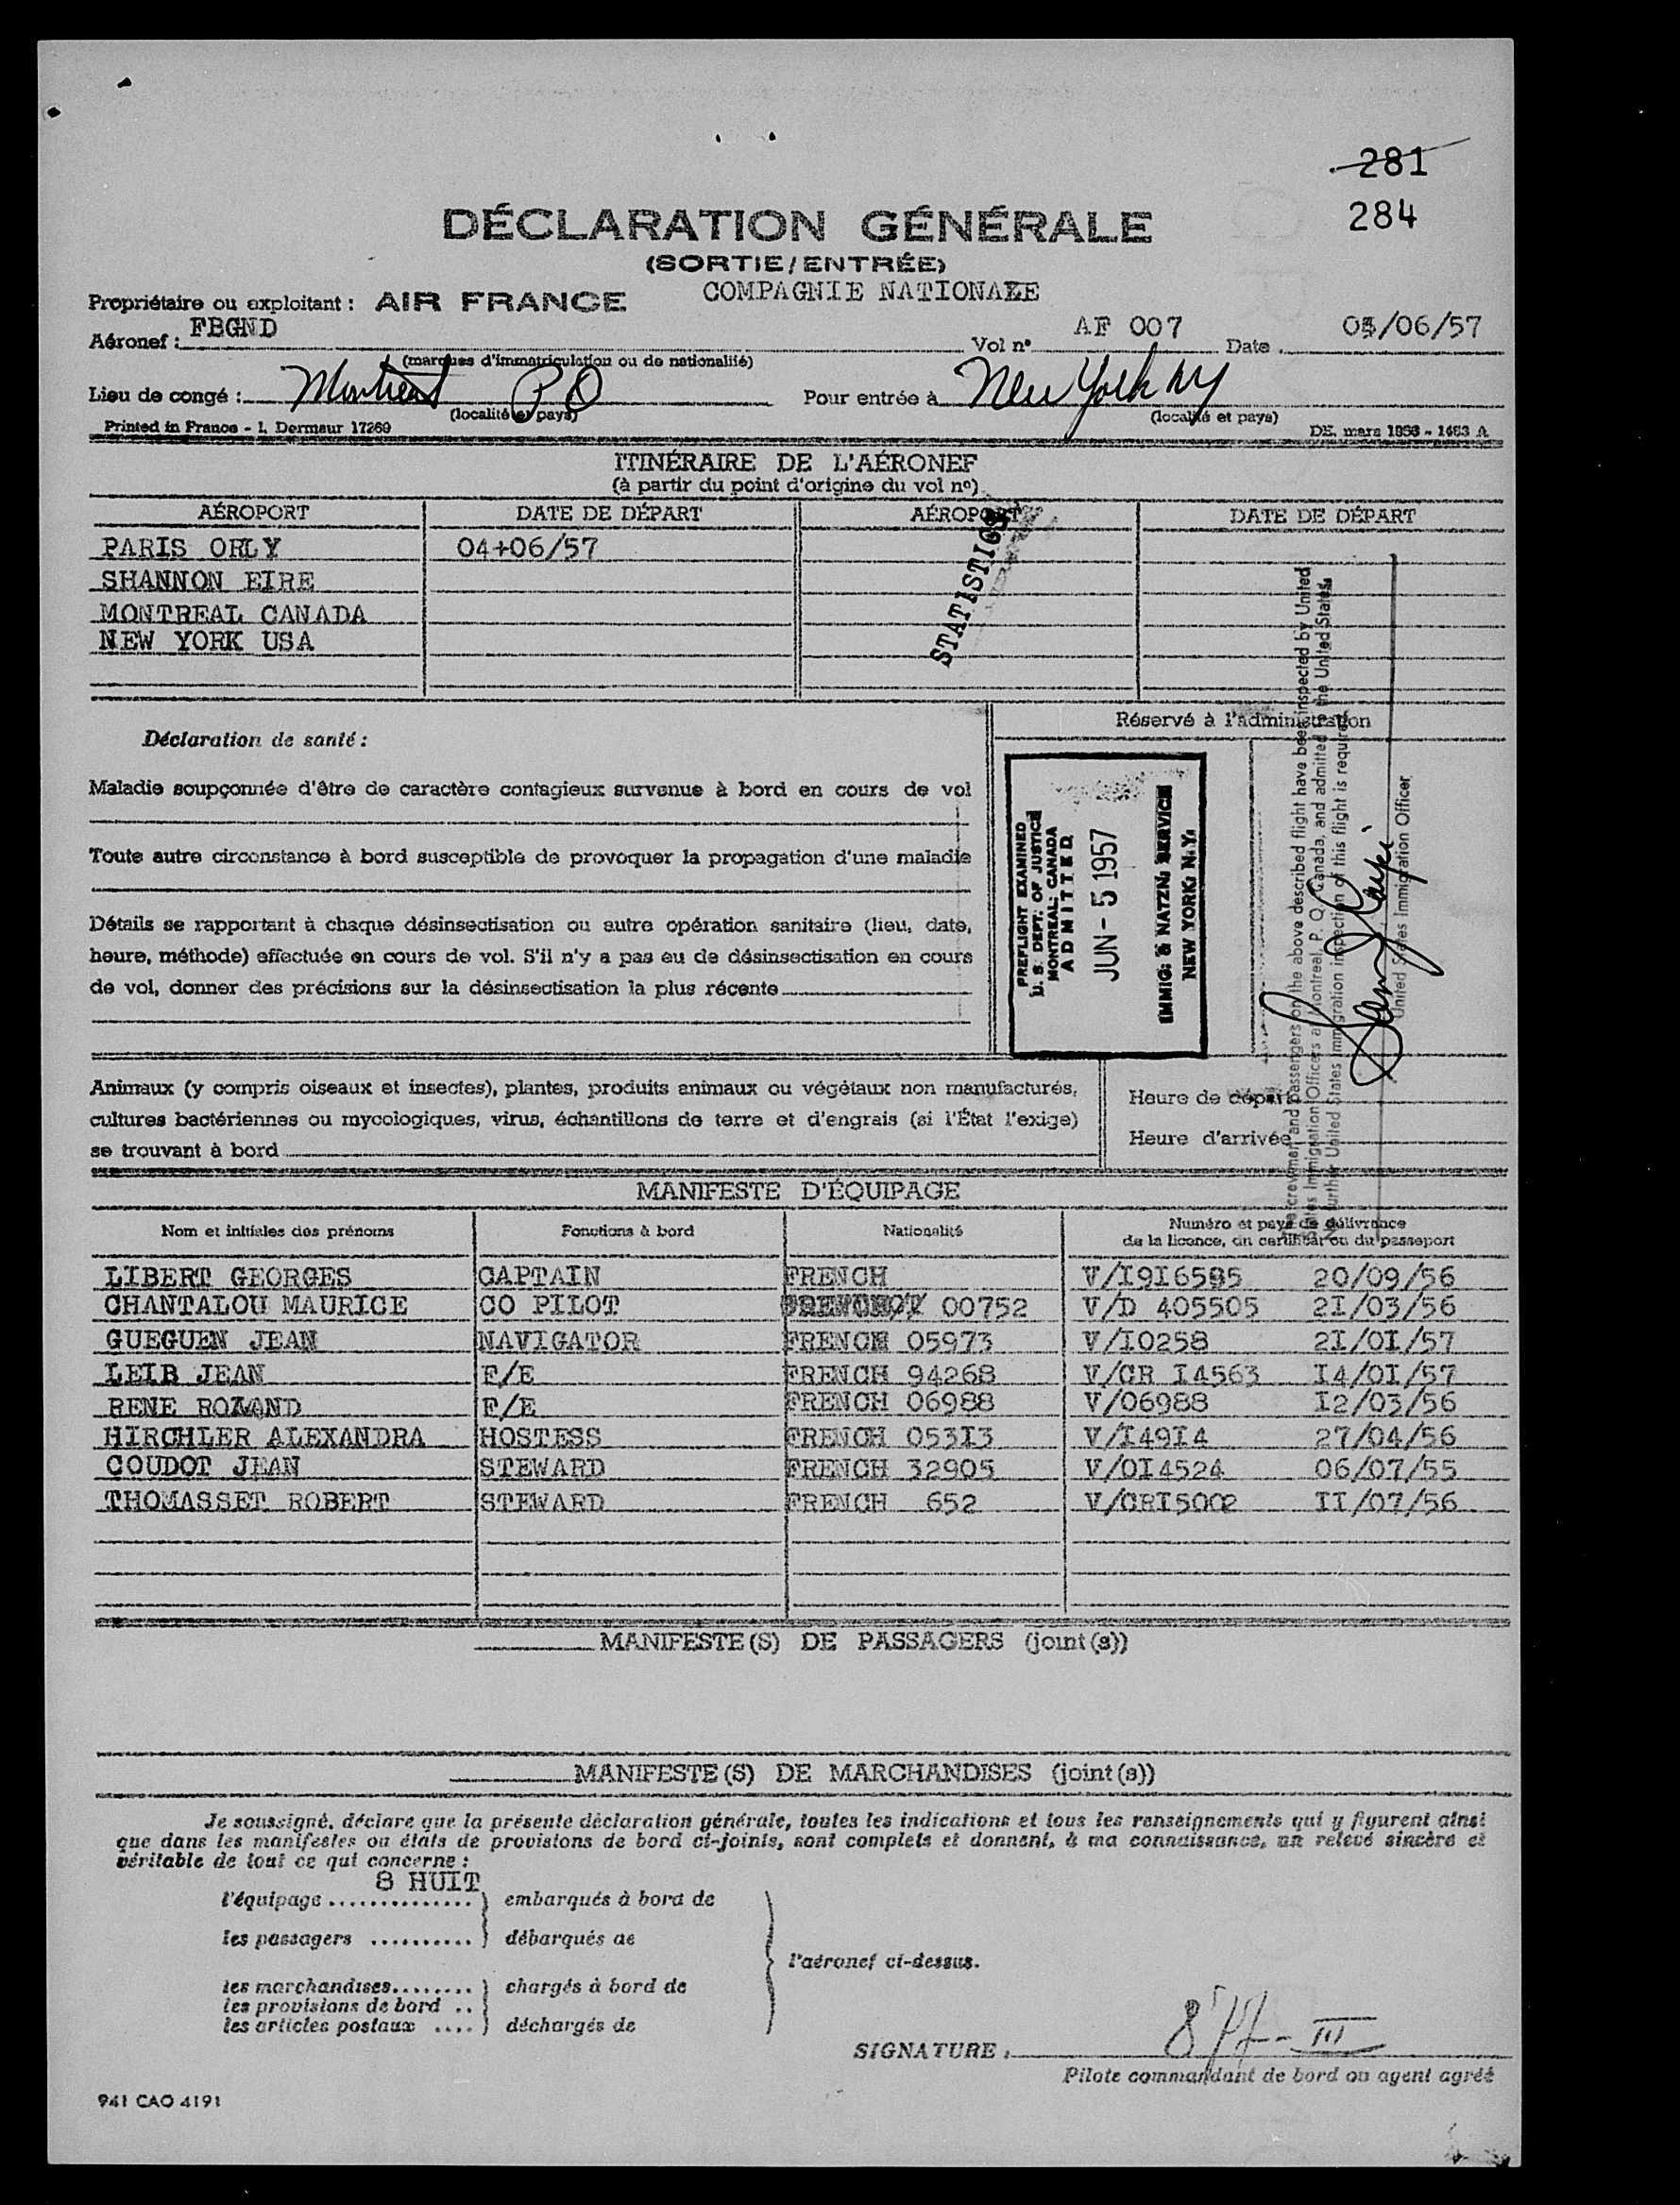 281
284
DÉCLARATION GÉNÉRALE
(SORTIE/ENTRÉE)
Propriétaire ou exploitant : AIR FRANCE COMPAGNIE NATIONALE
Aéronef : FBGND Vol n° AF 007 Date 05/06/57
(marques d'immatriculation ou de nationalité)
Lieu de congé : Montreal P Q Pour entrée à New York NY
(localité et pays) (localité et pays)
Printed in France - I. Dermaur 17269 DE. mars 1956 - 1483 A
ITINÉRAIRE DE L'AÉRONEF
(à partir du point d'origine du vol n°)
AÉROPORT DATE DE DÉPART AÉROPORT DATE DE DÉPART
PARIS ORLY 04+06/57
SHANNON EIRE
MONTREAL CANADA
NEW YORK USA
STATISTICS
Réservé à l'administration
Déclaration de santé :
Maladie soupçonnée d'être de caractère contagieux survenue à bord en cours de vol
Toute autre circonstance à bord susceptible de provoquer la propagation d'une maladie
Détails se rapportant à chaque désinsectisation ou autre opération sanitaire (lieu, date,
heure, méthode) effectuée en cours de vol. S'il n'y a pas eu de désinsectisation en cours
de vol, donner des précisions sur la désinsectisation la plus récente
PREFLIGHT EXAMINED
U. S. DEPT. OF JUSTICE
MONTREAL, CANADA
ADMITTED
JUN - 5 1957
IMMIG. & NATZN. SERVICE
NEW YORK, N.Y.
crewmen and passengers on the above described flight have been inspected by United
States Immigration Officers at Montreal, P. Q., Canada, and admitted to the United States.
further United States Immigration inspection of this flight is required.
United States Immigration Officer
Animaux (y compris oiseaux et insectes), plantes, produits animaux ou végétaux non manufacturés,
cultures bactériennes ou mycologiques, virus, échantillons de terre et d'engrais (si l'État l'exige)
se trouvant à bord
Heure de départ
Heure d'arrivée
MANIFESTE D'ÉQUIPAGE
Nom et initiales des prénoms Fonctions à bord Nationalité Numéro et pays de délivrance
de la licence, du certificat ou du passeport
LIBERT GEORGES CAPTAIN FRENCH V/I9I6585 20/09/56
CHANTALOU MAURICE CO PILOT 00752 V/D 405505 2I/03/56
GUEGUEN JEAN NAVIGATOR FRENCH 05973 V/I0258 2I/0I/57
LEIB JEAN F/E FRENCH 94268 V/CR I4563 I4/0I/57
RENE ROLAND F/E FRENCH 06988 V/06988 I2/03/56
HIRCHLER ALEXANDRA HOSTESS FRENCH 053I3 V/I49I4 27/04/56
COUDOT JEAN STEWARD FRENCH 32905 V/0I4524 06/07/55
THOMASSET ROBERT STEWARD FRENCH 652 V/CRI5002 II/07/56
MANIFESTE(S) DE PASSAGERS (joint(s))
MANIFESTE(S) DE MARCHANDISES (joint(s))
Je soussigné, déclare que la présente déclaration générale, toutes les indications et tous les renseignements qui y figurent ainsi
que dans les manifestes ou états de provisions de bord ci-joints, sont complets et donnent, à ma connaissance, un relevé sincère et
véritable de tout ce qui concerne :
8 HUIT
l'équipage .............. embarqués à bord de
les passagers .......... débarqués de
l'aéronef ci-dessus.
les marchandises........ chargés à bord de
les provisions de bord ..
les articles postaux .... déchargés de
SIGNATURE :
Pilote commandant de bord ou agent agréé
941 CAO 4191